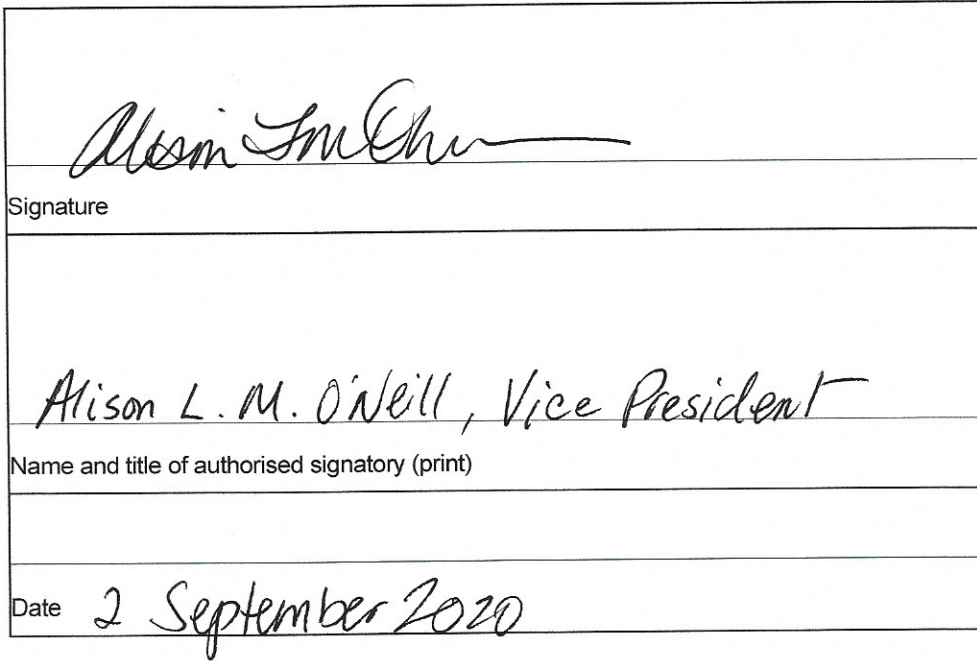 Alison
Signature
Alison L. M. O'Neill, Vice President
Name and title of authorised signatory (print)
Date 2 September 2020